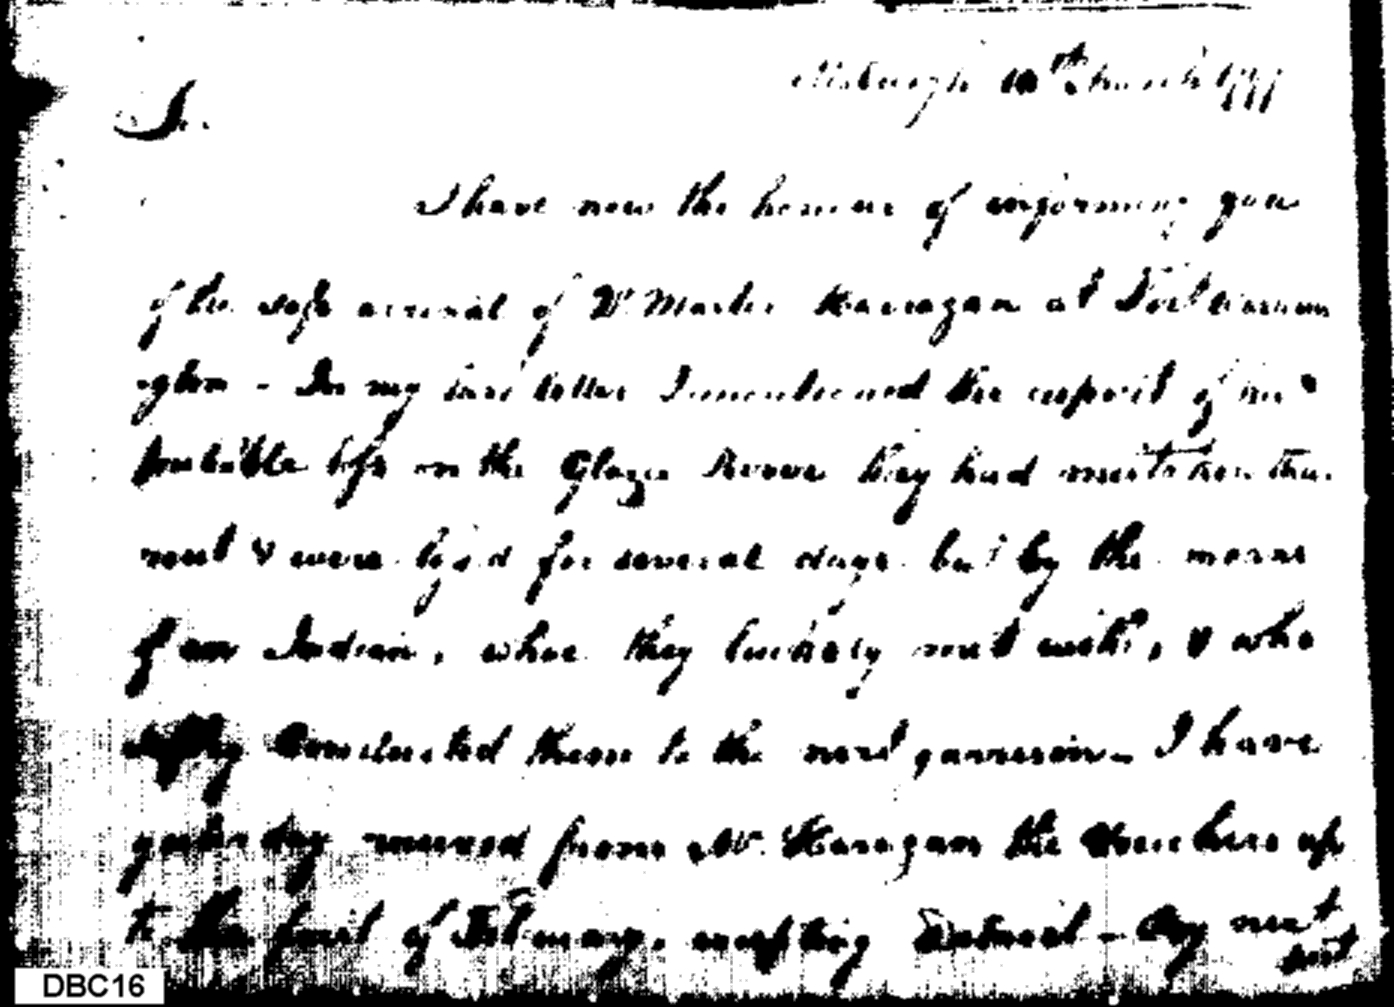 Pittsburgh 10th March 17
Sir.
I have now the honour of informing you
of the safe arrival of Mr. Martin Karragan at Fort
ington - In my last letter I mentioned the report of his
probable loss on the Glaze River they had
met & were lost for several days but by the means
of an Indian, whoe they luckely met with, & who
safely Conducted them to the next garrison - I have
yesterday received from Mr. Karragan the Vouchers up
to the first of February, excepting Detroit - by next
post
DBC16